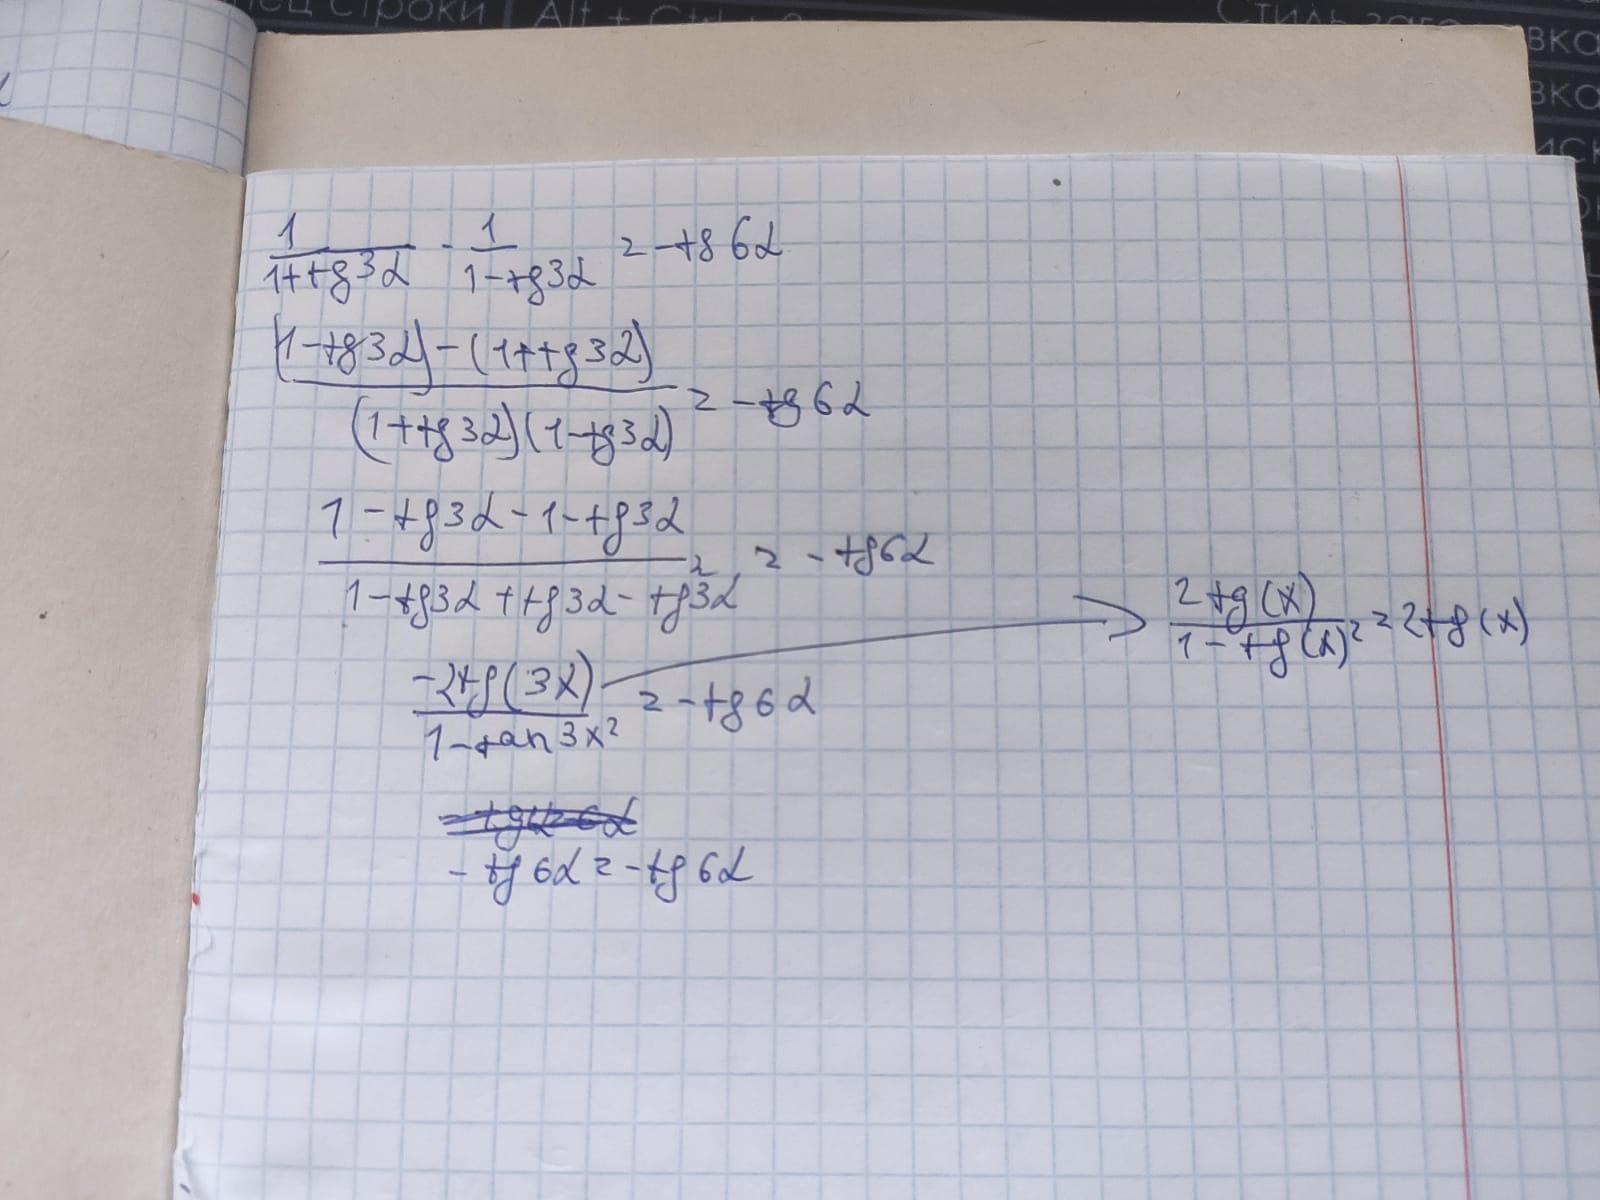 ец строки Alt + Ctrl + 2
Стиль заго вка
вка
иск
1/(1+tg3α) - 1/(1-tg3α) = -tg6α
((1-tg3α)-(1+tg3α))/((1+tg3α)(1-tg3α)) = -tg6α
(1-tg3α-1-tg3α)/(1-tg3α+tg3α-tg3α²) = -tg6α
(-2tg(3x))/(1-tan3x²) = -tg6α
(2tg(x))/(1-tg(x)²) = 2tg(x)
-tg6α=-tg6α